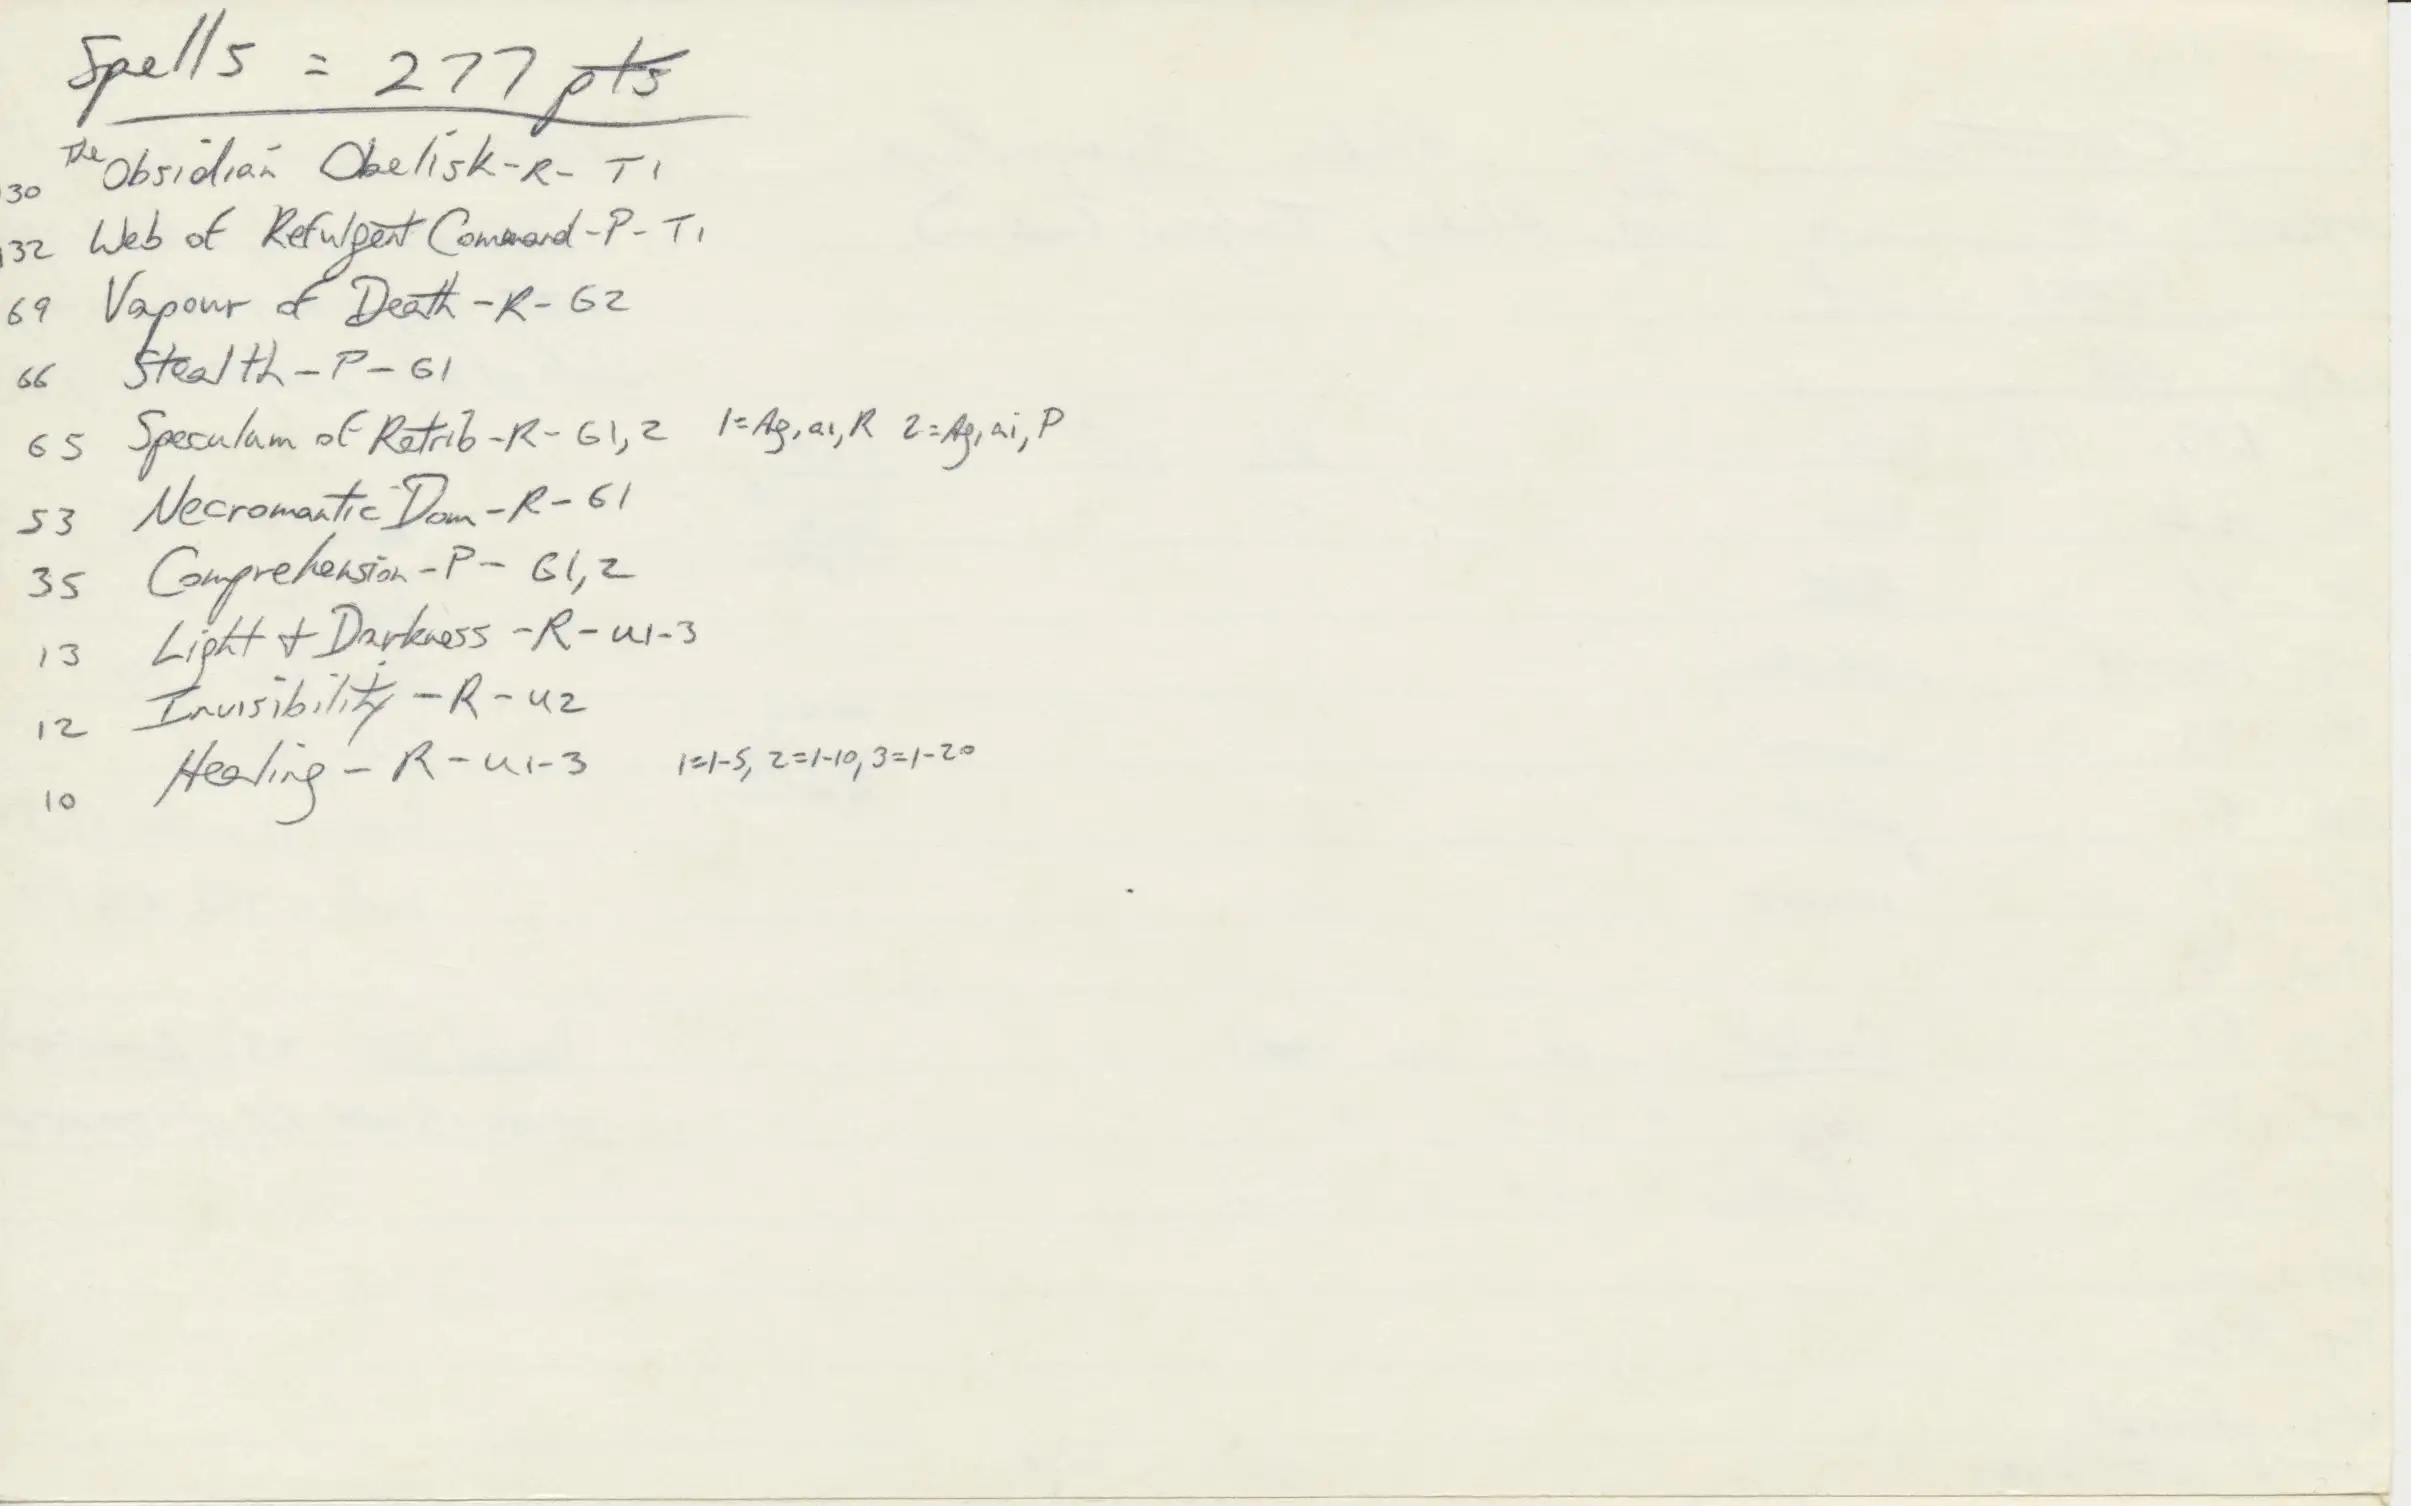 Spells = 277 pts
130 The Obsidian Obelisk-R- T1
132 Web of Refulgent Command-P-T1
69 Vapour of Death-R-G2
66 Stealth-P-G1
65 Speculum of Retrib-R-G1,2 1=Ag, ai, R 2=Ag, ai, P
53 Necromantic Dom-R-G1
35 Comprehension-P- G1,2
13 Light + Darkness -R-u1-3
12 Invisibility -R-u2
10 Healing - R-u1-3 1=1-5, 2=1-10, 3=1-20